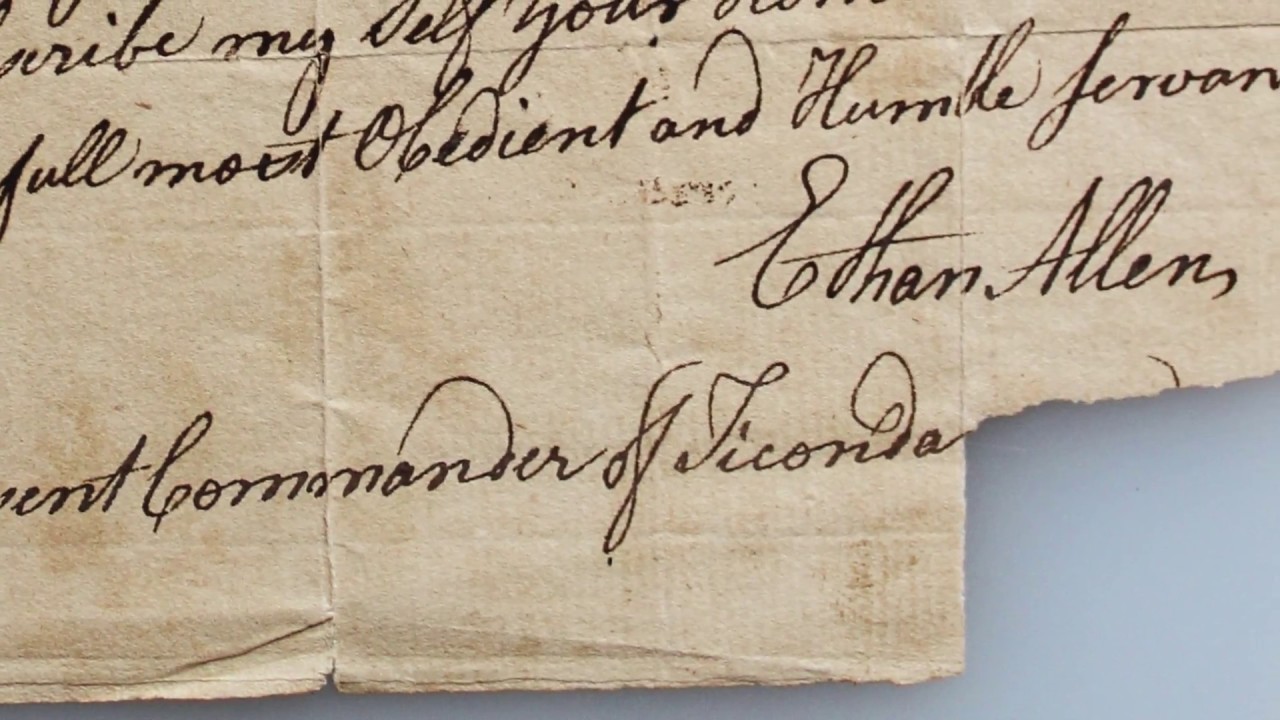 scribe my Self your Hon
full most Obedient and Humble servan
Ethan Allen
sent Commander of Ticonda